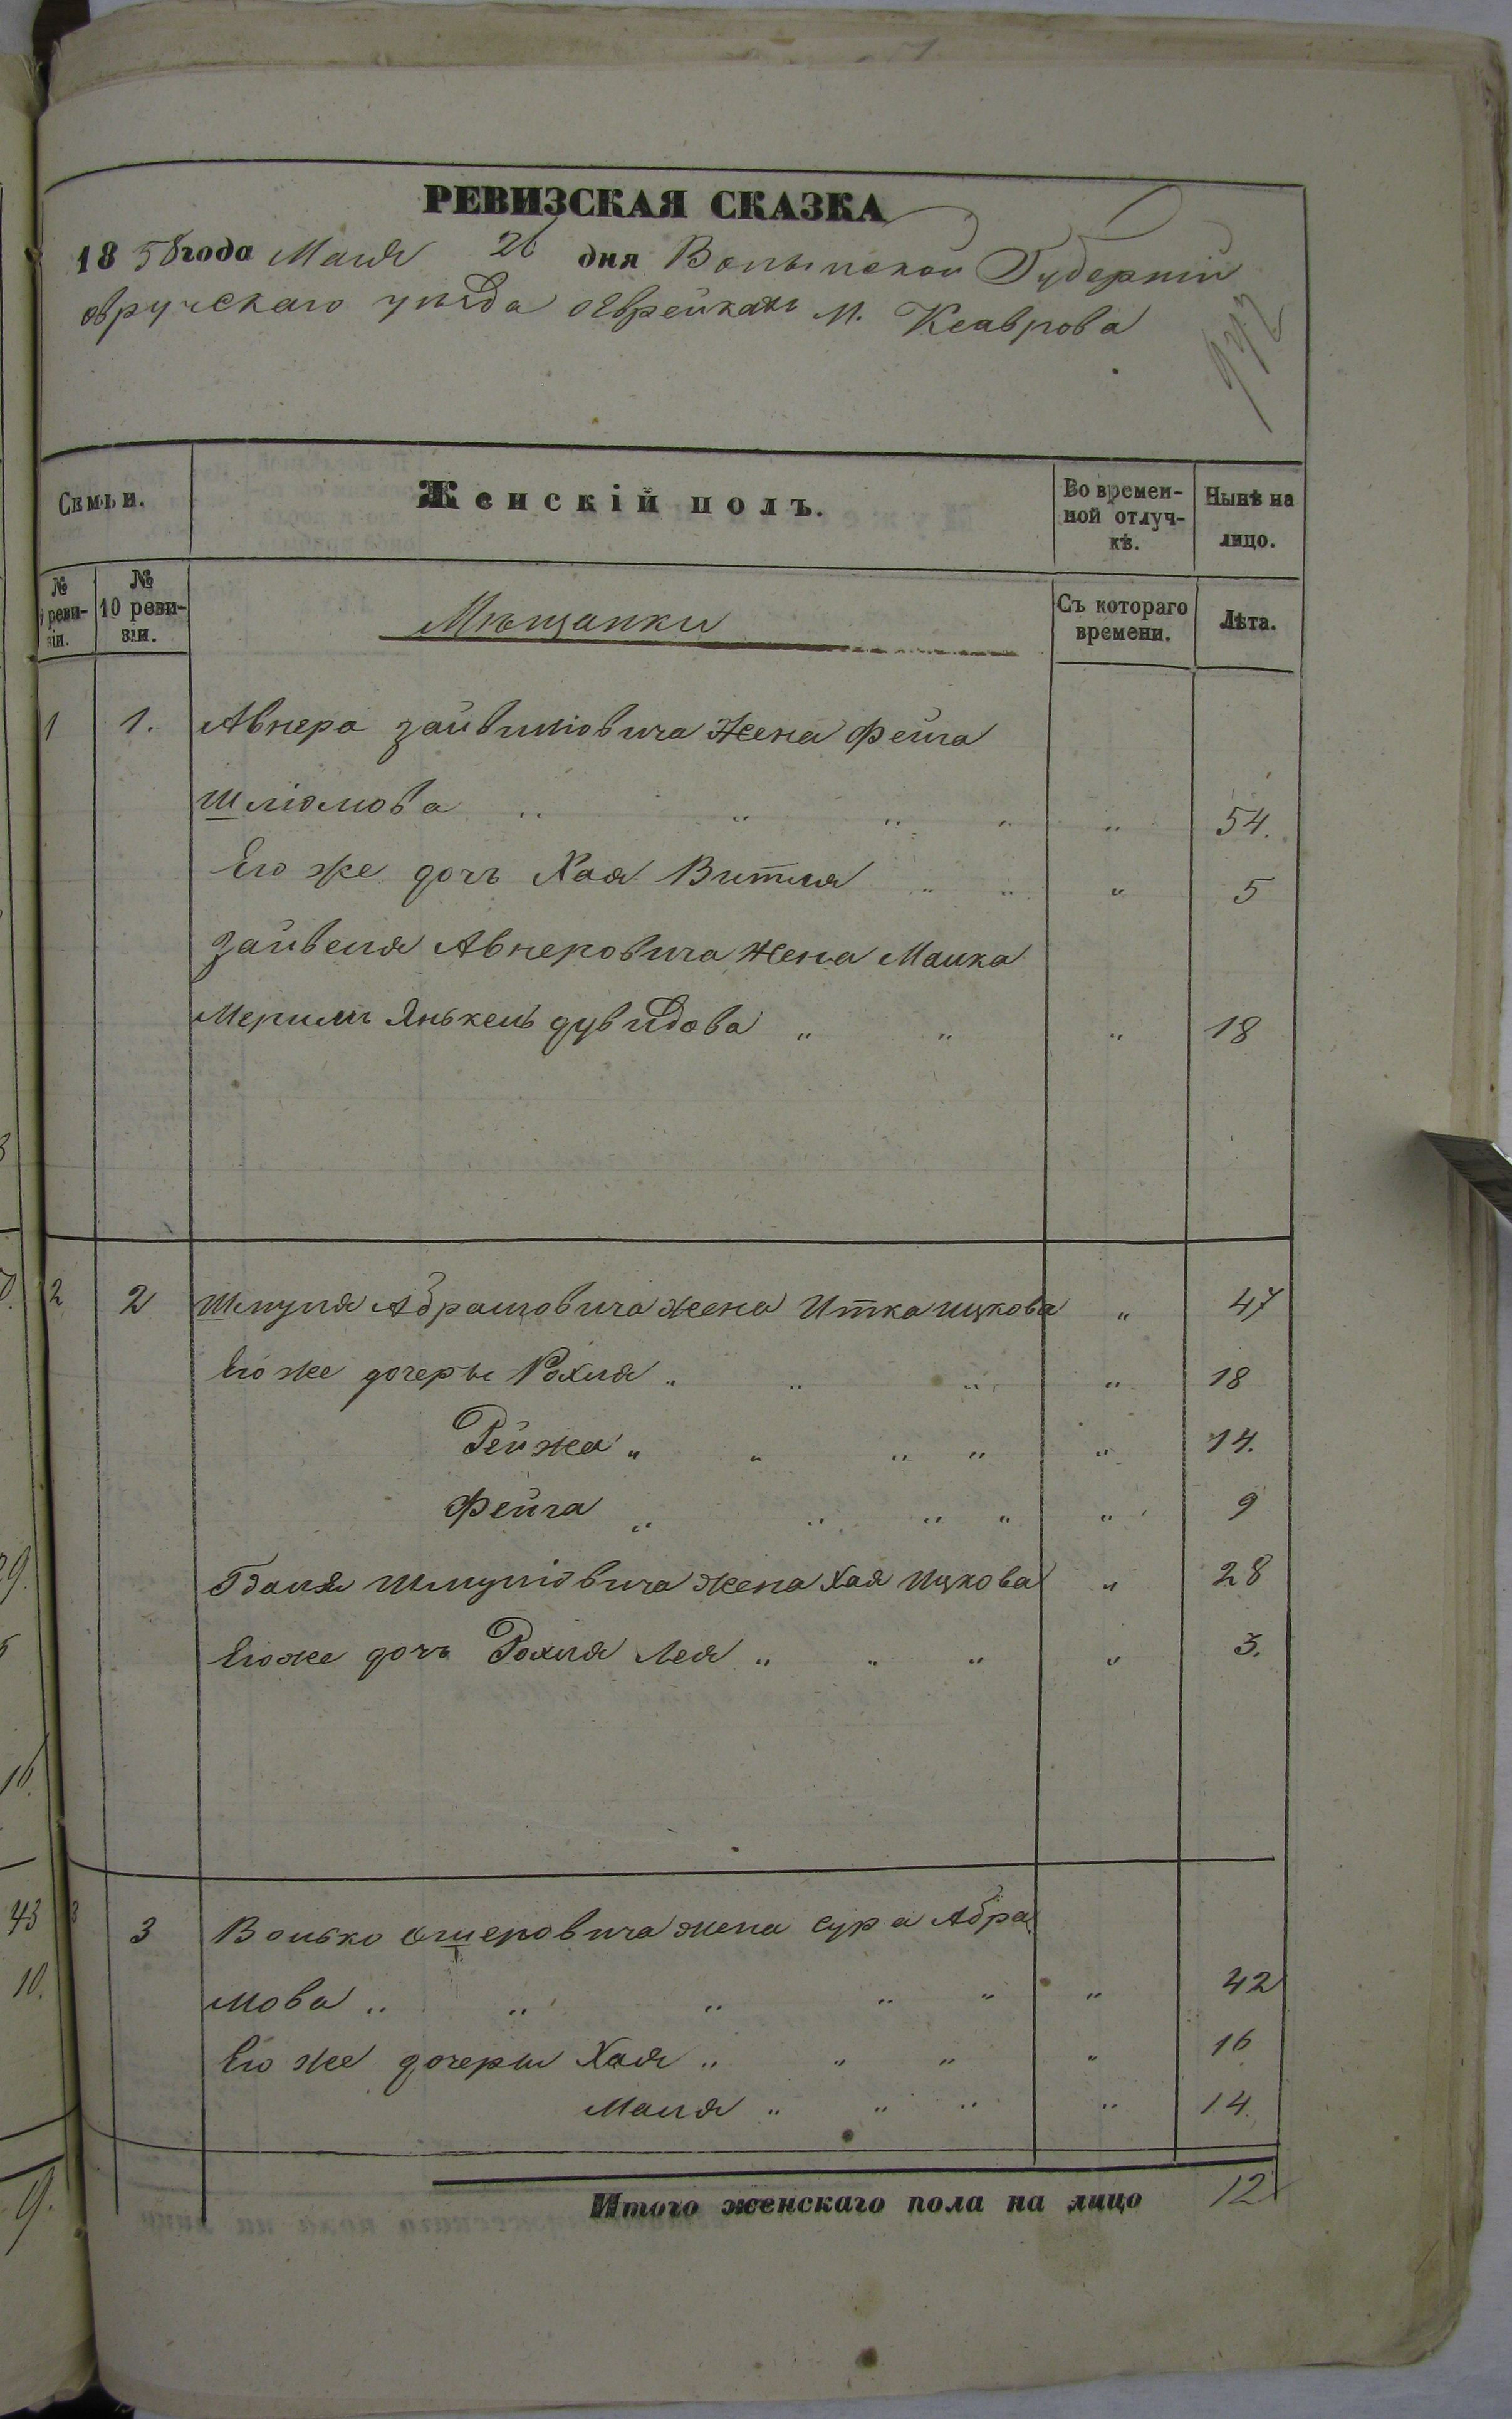 РЕВИЗСКАЯ СКАЗКА
1858 года Маія 26 дня Волынской Губерніи
овручскаго уѣзда о Еврейкахъ м. Ксаврова
Семьи.
Женскій полъ.
Во времен-
ной отлуч-
кѣ.
Нынѣ на
лицо.
№
реви-
зіи.
№
10 реви-
зіи.
Мѣщанки
Съ котораго
времени.
Лѣта.
1 1. Авнера зайвиліовича жена Фейга
Шліомова " " " " " 54.
Его же дочь Хая Витля " " " 5
Зайвеля Авнеровича жена Малка
Меримъ Янькель дувидова " " " 18
2 2 Шмуля Абрамовича жена Итка ицкова " 47
Его же дочеры Рохля " " " " 18
Рейжа " " " " " 14.
Фейга " " " " " 9
Гдаля Шмуліовича жена Хая Ицкова " 28
Его же дочъ Рохля Лея " " " " 3.
3 3 Волько ошеровича жена сура Абра
мова " " " " " " 42
Его же дочеры Хая " " " " 16
Маля " " " " 14.
Итого женскаго пола на лицо 12
43
10.
9.